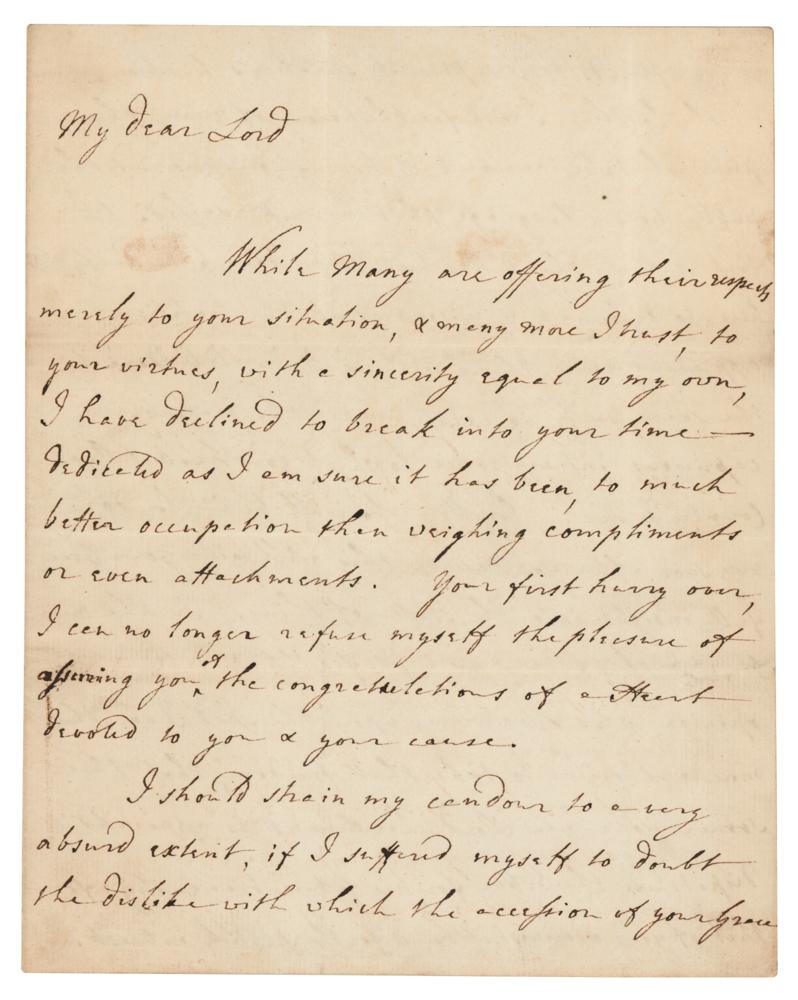 My dear Lord
While Many are offering their respects
merely to your situation, & many more I trust, to
your virtues, with a sincerity equal to my own,
I have declined to break into your time —
dedicated as I am sure it has been, to much
better occupation than weighing compliments
or even attachments. Your first hurry over,
I can no longer refuse myself the pleasure of
assuring you of the congratulations of a Heart
devoted to you & your cause.
I should strain my candour to a very
absurd extent, if I suffered myself to doubt
the dislike with which the accession of your Grace